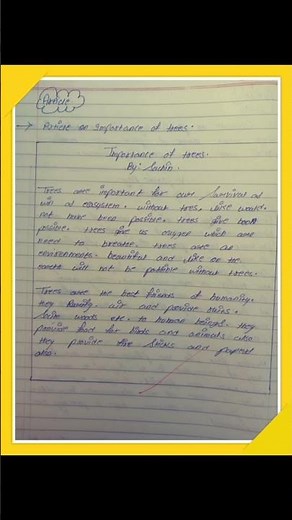 Article
→ Article on Importance of trees.
Importance of trees.
By: Sachin
Trees are important for our survival as
as ecosystem. without trees, life would
not have been possible. trees give
trees give us oxygen which are
need to breathe. trees are
environments beautiful and life on the
earth will not be possible without trees.
Trees are the best friends of humanity.
they air and provide
woods etc. to human beings. they
provide food for birds and animals also
they provide and
also.